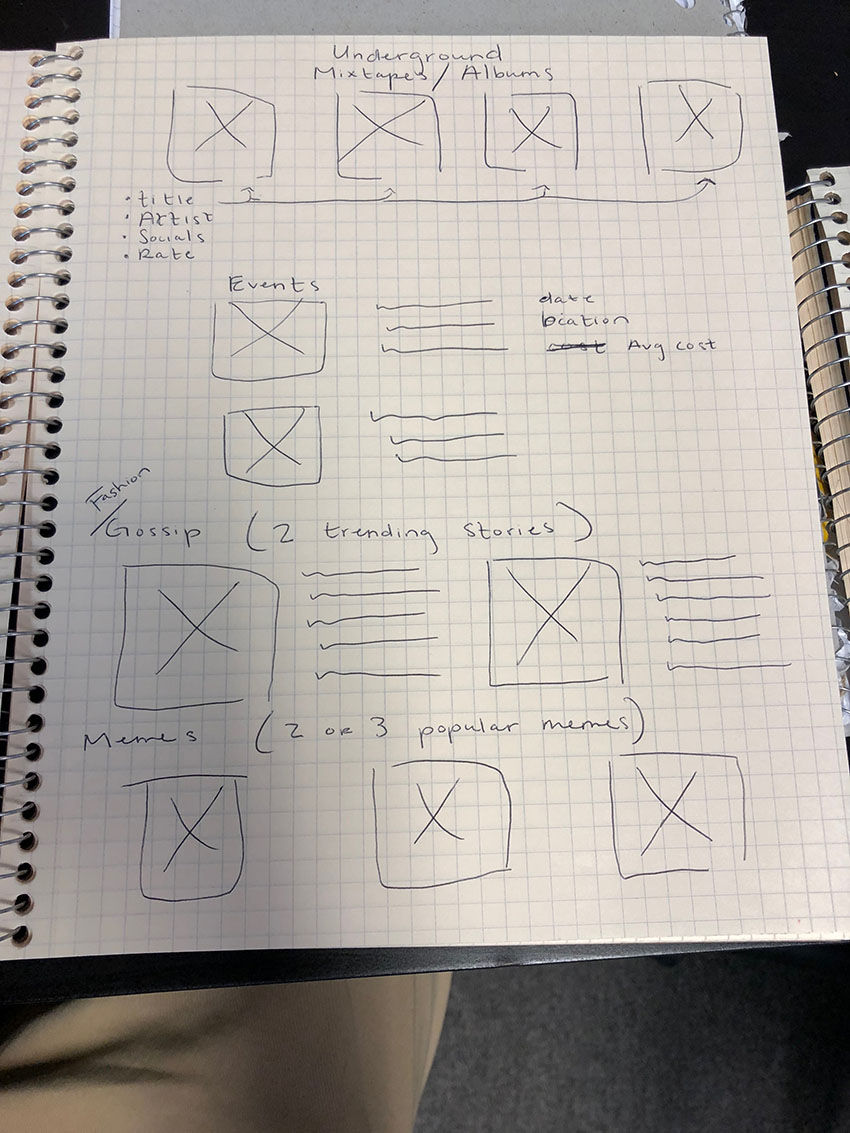 Underground
Mixtapes / Albums
• title
• Artist
• Socials
• Rate
Events
date
location
cost Avg cost
Fashion
/Gossip (2 trending stories)
Memes (2 or 3 popular memes)